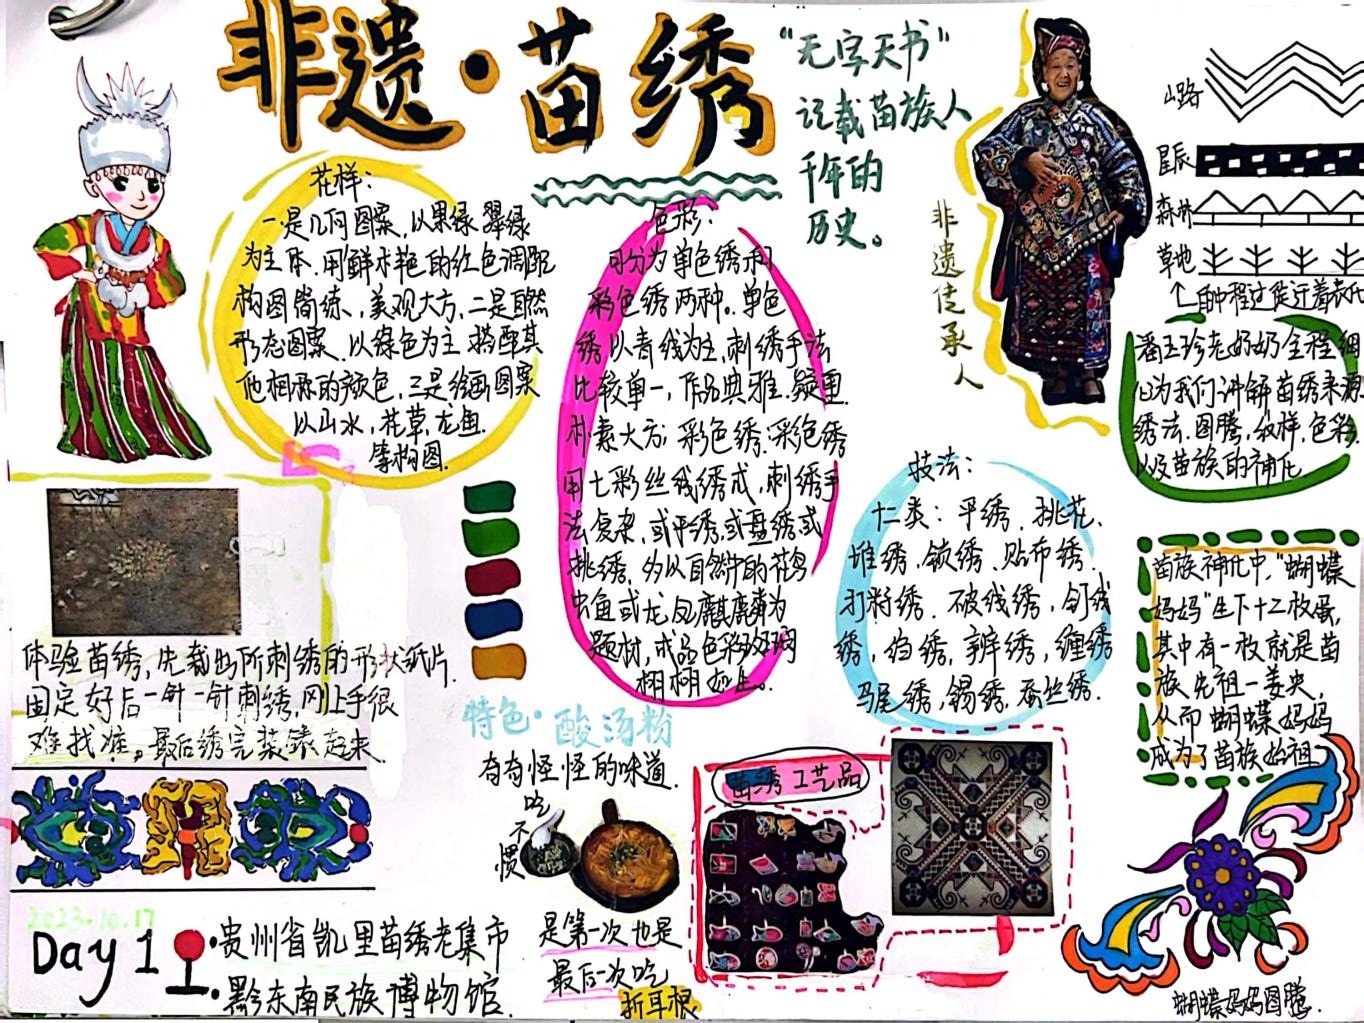 非遗·苗绣
“无字天书”
记载苗族人
千年的
历史。
非遗传承人
山路
星辰
森林
草地
潘玉珍老奶奶全程细
心为我们讲解苗绣来源
绣法、图腾、纹样、色彩
以及苗族的神化
花样:
一是几何图案,以果绿翠绿
为主体,用鲜艳的红色调配
构图简练,美观大方,二是自然
形态图案,以绿色为主搭配其
他相称的颜色,三是绘画图案
以山水,花草,龙鱼.
等构图.
色彩:
可分为单色绣和
彩色绣两种。单色
绣以青线为主,刺绣手法
比较单一,作品典雅.凝重.
朴素大方;彩色绣:采绝绣
用七彩丝线绣式,刺绣手
法复杂,或平绣,或盘绣,或
挑绣,多以自然中的花鸟
虫鱼或龙凤麒麟为
题材,成品色彩
栩栩如生。
技法:
十二类:平绣、挑花、
堆绣、锁绣、贴布绣、
打籽绣、破线绣,钉线
绣,绉绣,辫绣,缠绣
马尾绣,锡绣,蚕丝绣.
苗族神化中,“蝴蝶
妈妈”生下十二枚蛋,
其中有一枚就是苗
族先祖一姜央,
从而蝴蝶妈妈
成为了苗族始祖
体验苗绣,先裁出所刺绣的形状纸片
固定好后一针一针刺绣,刚上手很
难找准。最后绣完装裱起来.
特色·酸汤粉
奇奇怪怪的味道.
吃不惯
是第一次也是
最后一次吃
折耳根
苗绣工艺品
2023.10.17
Day 1
·贵州省凯里苗绣老集市
·黔东南民族博物馆.
蝴蝶妈妈图腾.